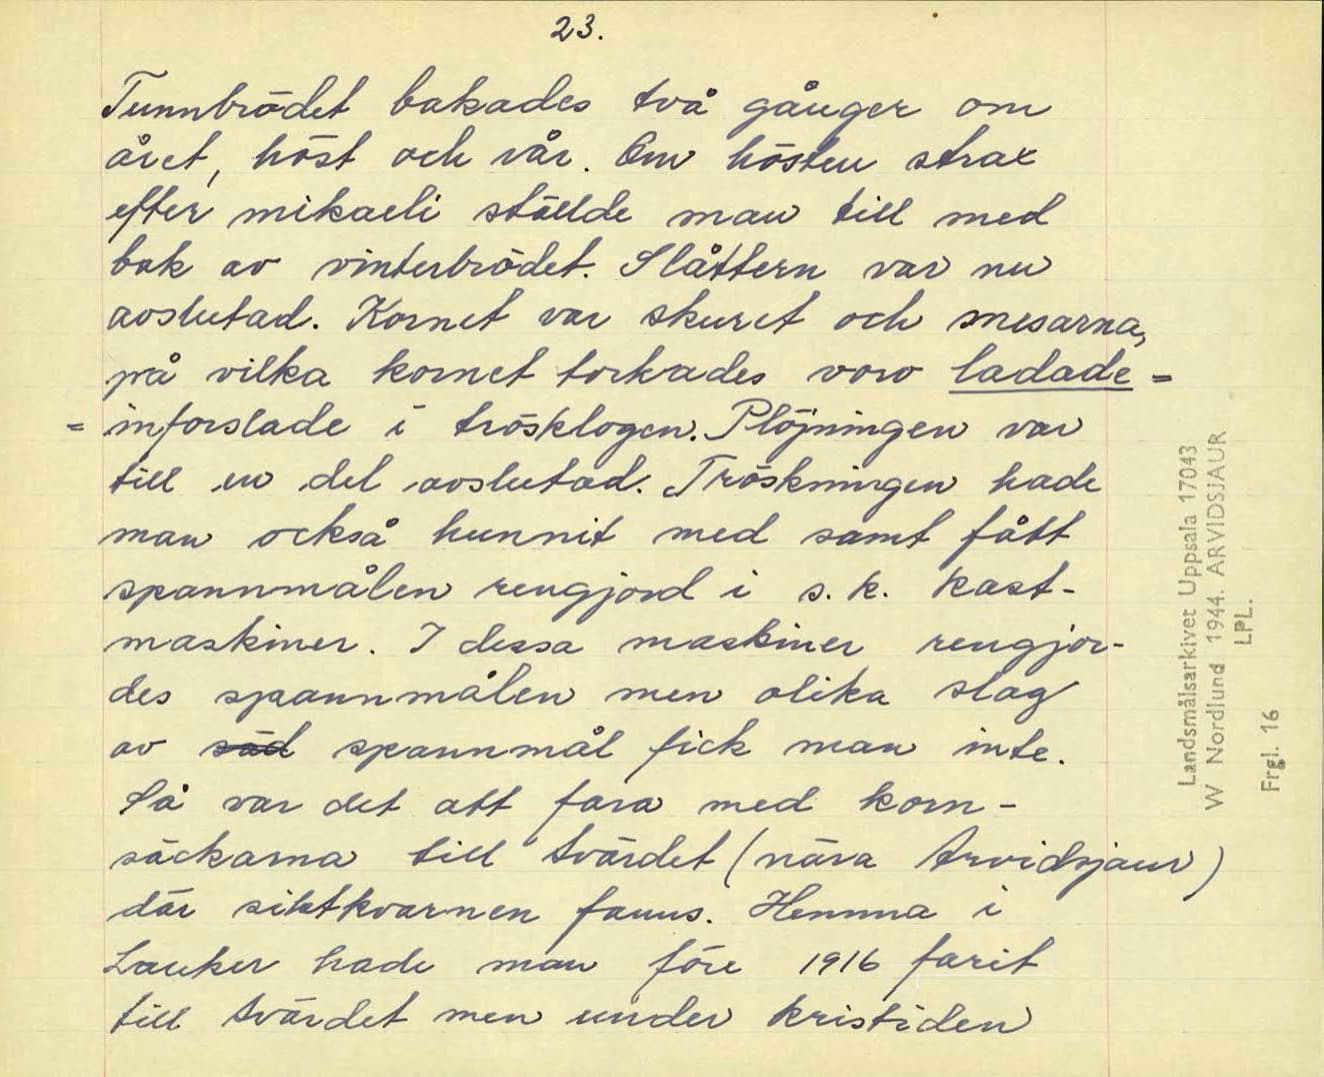 23.
Tunnbrödet bakades två gånger om
året, höst och vår. Om hösten strax
efter mikaeli ställde man till med
bak av vinterbrödet. Slåttern var nu
avslutad. Kornet var skuret och snesarna,
på vilka kornet torkades voro ladade =
= inforslade i trösklogen. Plöjningen var
till en del avslutad. Tröskningen hade
man också hunnit med samt fått
spannmålen rengjord i s.k. kast-
maskiner. I dessa maskiner rengjor-
des spannmålen men olika slag
av säd spannmål fick man inte.
Så var det att fara med korn-
säckarna till Avärdet (nära Arvidsjaur)
där siktkvarnen fanns. Hemma i
Lauker hade man före 1916 farit
till Avärdet men under kristiden
Landsmålsarkivet Uppsala 17043
W Nordlund 1944. ARVIDSJAUR
LPL.
Frgl. 16